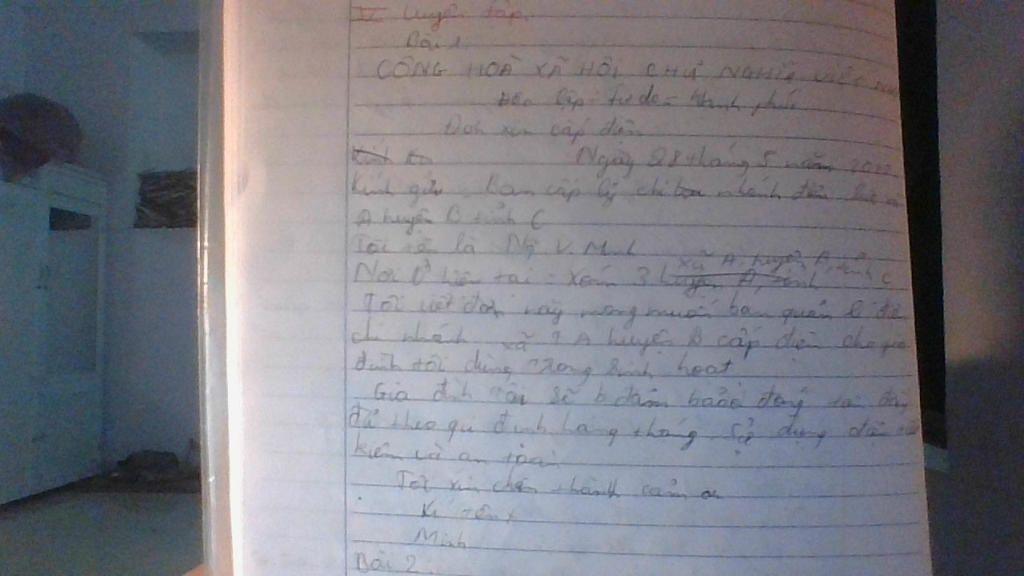 IV Luyện tập.
Bài 1
CỘNG HOÀ XÃ HỘI CHỦ NGHĨA VIỆT NAM
Độc lập - Tự do - Hạnh phúc
Đơn xin cấp điện
Kính Ngày 28 tháng 5 năm
Kính gửi chi nhánh điện
A huyện B tỉnh C
Tôi tên là Ng V. Minh
xã A, huyện tỉnh C
Nơi ở hiện tại : Xóm 3 huyện A, tỉnh
Tôi viết đơn này mong muốn ban quản lí
chi nhánh xã A huyện B cấp điện cho gia
đình tôi dùng trong sinh hoạt
Gia đình tôi sẽ đảm bảo đóng
đủ theo qui định hàng tháng. Sử dụng điện
kiệm và an toàn
Tôi xin chân thành cảm ơn
Kí tên
Minh
Bài 2.